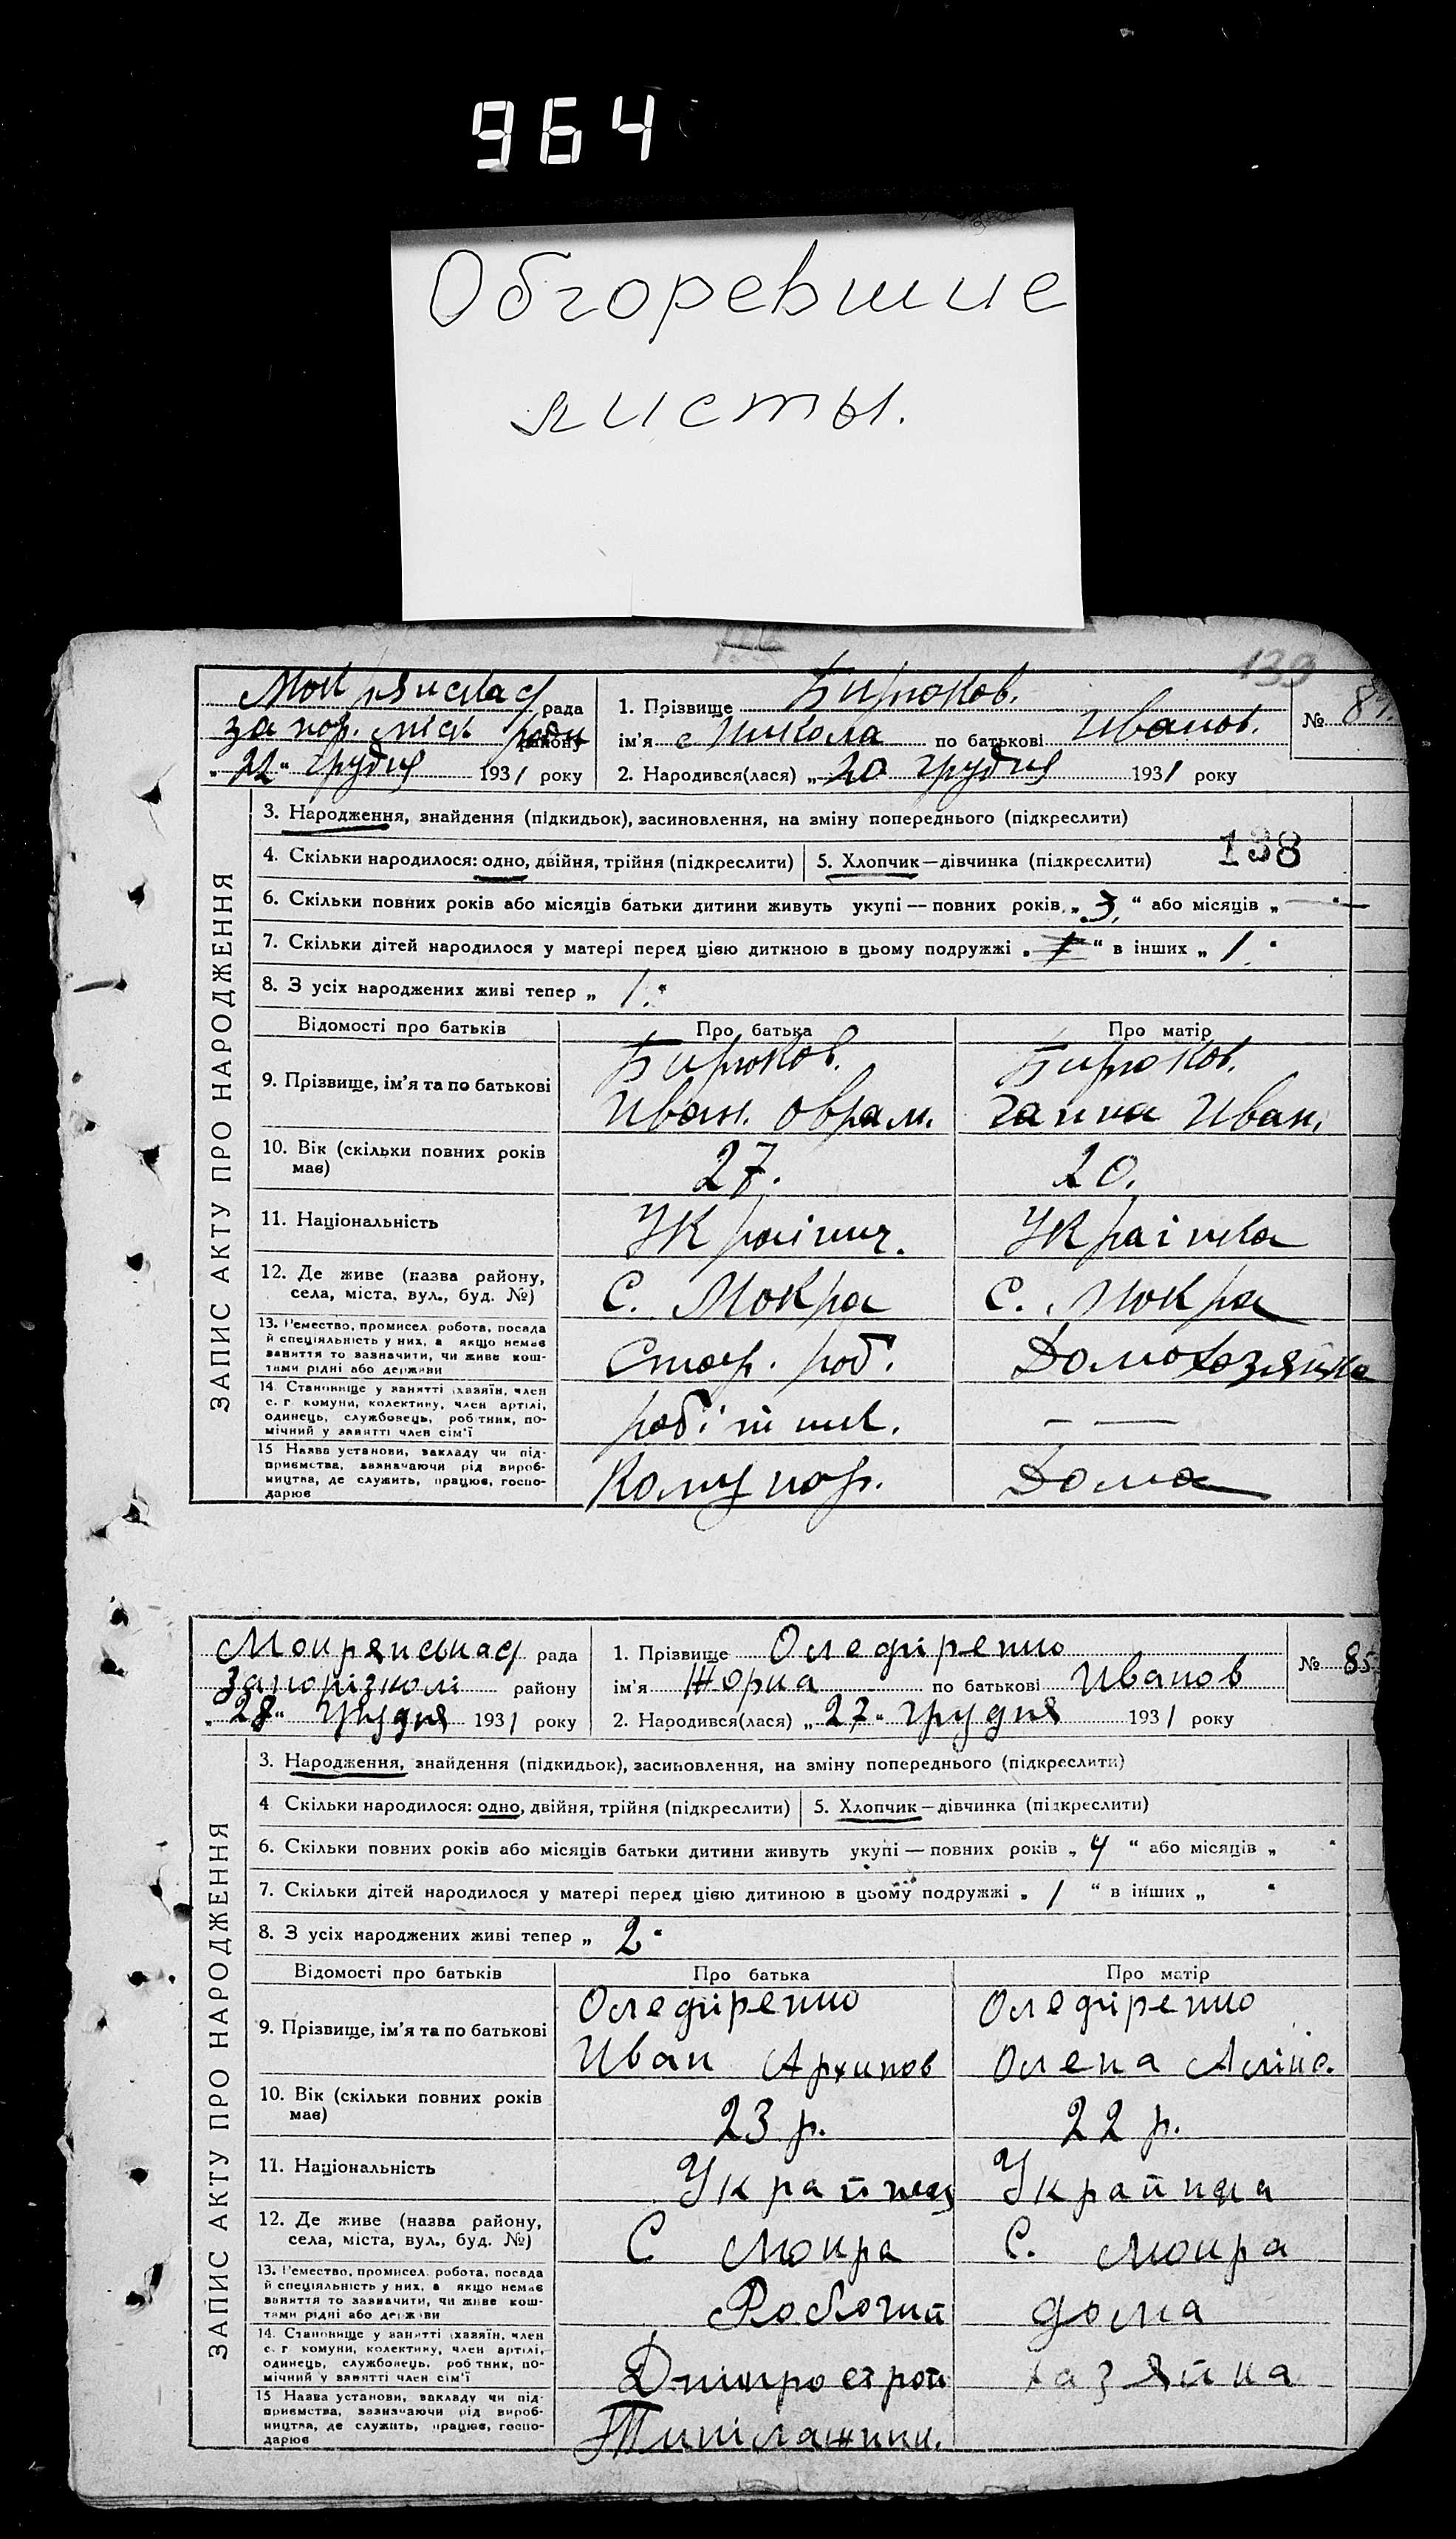 964
Обгоревшие
листы.
139
рада
1. Прізвище Бирюков.
№ 84.
запор. міськ ради
району
ім'я Микола по батькові Иванов.
„22“ грудня 1931 року
2. Народився(лася) „20 грудня 1931 року
ЗАПИС АКТУ ПРО НАРОДЖЕННЯ
3. Народження, знайдення (підкидьок), засиновлення, на зміну попереднього (підкреслити)
4. Скільки народилося: одно, двійня, трійня (підкреслити)
5. Хлопчик—дівчинка (підкреслити)
138
6. Скільки повних років або місяців батьки дитини живуть укупі — повних років „3“ або місяців „—“
7. Скільки дітей народилося у матері перед цією дитиною в цьому подружжі „1“ в інших „1.“
8. З усіх народжених живі тепер „1.“
Відомості про батьків
Про батька
Про матір
9. Прізвище, ім'я та по батькові
Бирюков.
Иван. Оврам.
Бирюков.
Ганна Иван.
10. Вік (скільки повних років має)
27.
20.
11. Національність
Українц.
Українка
12. Де живе (назва району, села, міста, вул., буд. №)
С. Мокра
С. Мокра
13. Ремество, промисел, робота, посада й спеціяльність у них, а якщо немає заняття то зазначити, чи живе коштами рідні або держави
роб.
Домохозяйка
14. Становище у занятті (хазяїн, член с. г. комуни, колективу, член артілі, одинець, службовець, робітник, помічний у занятті член сім'ї
робітник.
— —
15 Назва установи, закладу чи підприємства, зазначаючи рід виробництва, де служить, працює, господарює
Дома
Мокрянська рада
1. Прізвище Олефіренко
№ 85
району
ім'я Жорка по батькові Иванов
„28“ грудня 1931 року
2. Народився(лася) „27“ грудня 1931 року
ЗАПИС АКТУ ПРО НАРОДЖЕННЯ
3. Народження, знайдення (підкидьок), засиновлення, на зміну попереднього (підкреслити)
4 Скільки народилося: одно, двійня, трійня (підкреслити)
5. Хлопчик—дівчинка (підкреслити)
6. Скільки повних років або місяців батьки дитини живуть укупі — повних років „4“ або місяців „ “
7. Скільки дітей народилося у матері перед цією дитиною в цьому подружжі „1“ в інших „ “
8. З усіх народжених живі тепер „2“
Відомості про батьків
Про батька
Про матір
9. Прізвище, ім'я та по батькові
Олефіренко
Иван Архипов
Олефіренко
Олена
10. Вік (скільки повних років має)
23 р.
22 р.
11. Національність
Украйнец
Украйнка
12. Де живе (назва району, села, міста, вул., буд. №)
С Мокра
С. Мокра
13. Ремество, промисел, робота, посада й спеціяльність у них, а якщо немає заняття то зазначити, чи живе коштами рідні або держави
Робочий
дома
14. Становище у занятті (хазяїн, член с. г. комуни, колективу, член артілі, одинець, службовець, робітник, помічний у занятті член сім'ї
Дніпрострой
хазяйка
15 Назва установи, закладу чи підприємства, зазначаючи рід виробництва, де служить, працює, господарює